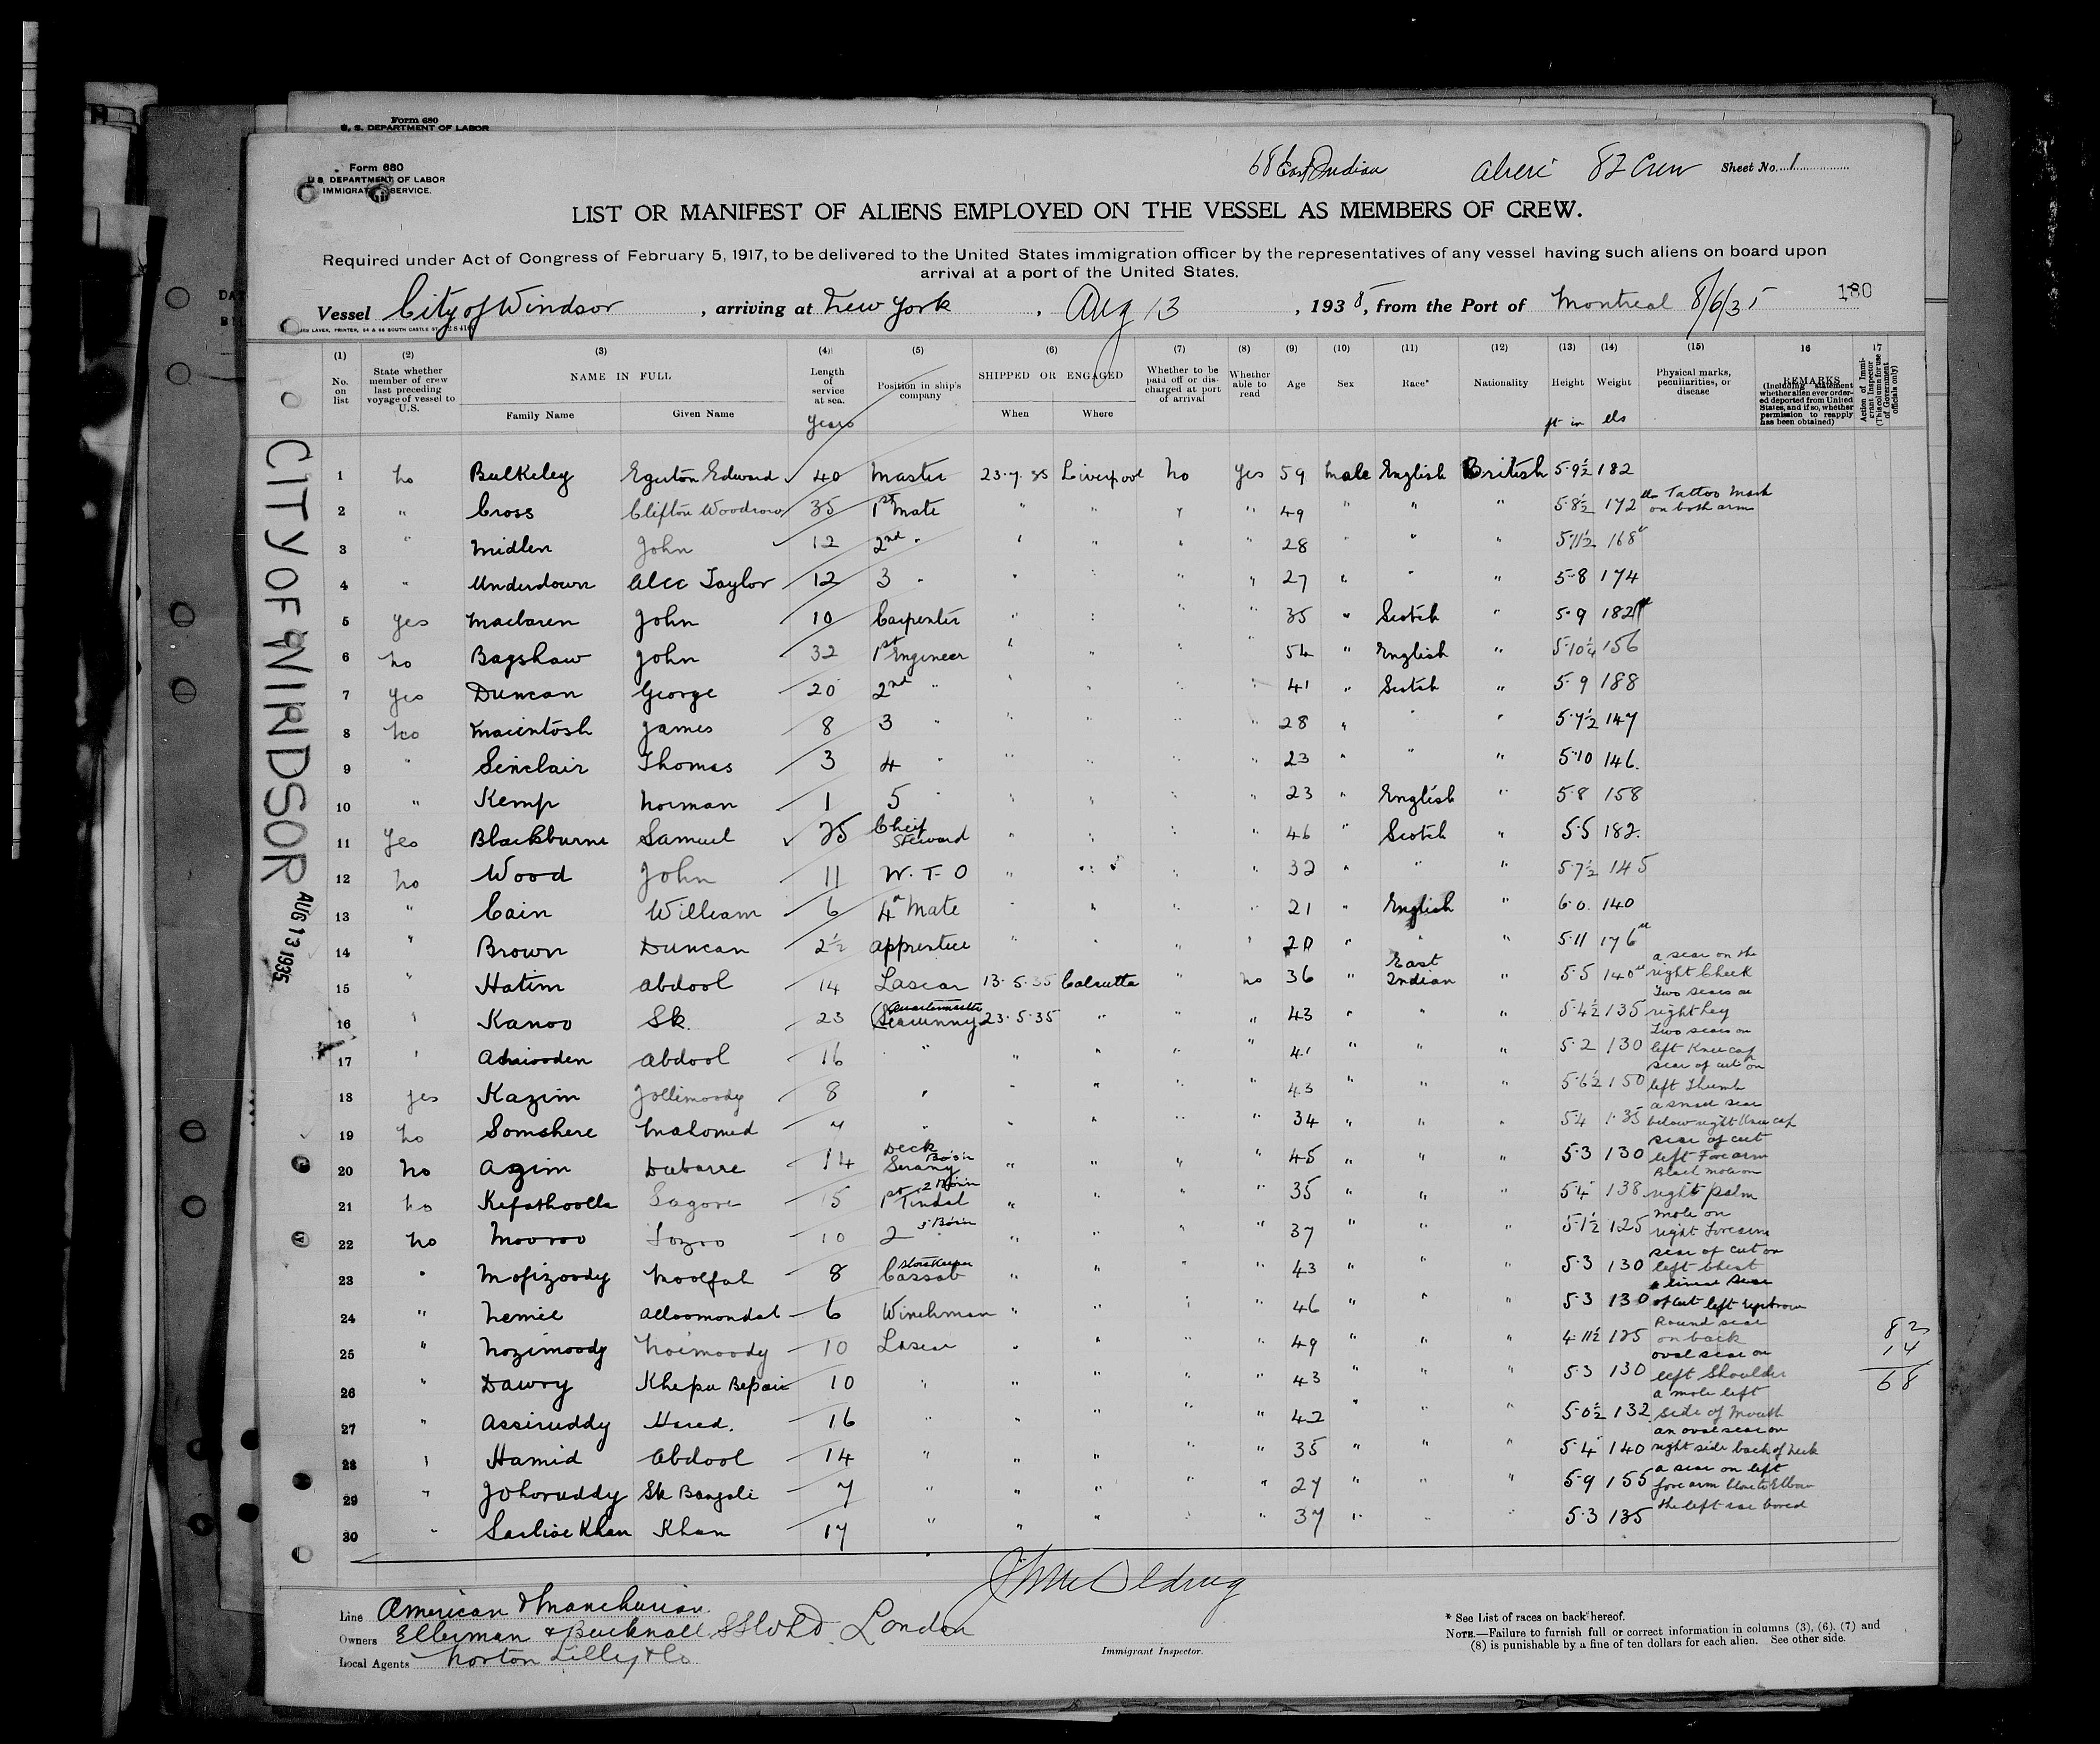 Form 680
U. S. DEPARTMENT OF LABOR
Form 680
U.S. DEPARTMENT OF LABOR
IMMIGRATION SERVICE.
68 East Indian 82 Crew Sheet No. 1
LIST OR MANIFEST OF ALIENS EMPLOYED ON THE VESSEL AS MEMBERS OF CREW.
Required under Act of Congress of February 5, 1917, to be delivered to the United States immigration officer by the representatives of any vessel having such aliens on board upon
arrival at a port of the United States.
Vessel City of Windsor, arriving at New York, Aug 13, 1935, from the Port of Montreal 8/6/35 180
(1) (2) (3) (4) (5) (6) (7) (8) (9) (10) (11) (12) (13) (14) (15) 16 17
No. on list
State whether member of crew last preceding voyage of vessel to U.S.
NAME IN FULL
Family Name Given Name
Length of service at sea. Years
Position in ship's company
SHIPPED OR ENGAGED
When Where
Whether to be paid off or discharged at port of arrival
Whether able to read
Age
Sex
Race*
Nationality
Height ft in
Weight
Physical marks, peculiarities, or disease
REMARKS
(Including statement whether alien ever ordered deported from United States, and if so, whether permission to reapply has been obtained)
Action of Immigrant Inspector (This column for use of Government officials only)
CITY OF WINDSOR
AUG 13 1935
1 no Bulkeley Egerton Edward 40 Master 23.7.35 Liverpool no yes 59 male English British 5.9½ 182
2 " Cross Clifton Woodrow 35 1st Mate " " " " 49 " " " 5.8½ 172 Tattoo mark on both arm
3 " Midlen John 12 2nd " " " " " 28 " " " 5.11½ 168
4 " Underdown Alec Taylor 12 3 " " " " " 27 " " " 5.8 174
5 yes Maclaren John 10 Carpenter " " " " 35 " Scotch " 5.9 182
6 no Bagshaw John 32 1st Engineer " " " " 54 " English " 5.10¼ 156
7 yes Duncan George 20 2nd " " " " " 41 " Scotch " 5.9 188
8 no Macintosh James 8 3 " " " " " 28 " " " 5.7½ 147
9 " Sinclair Thomas 3 4 " " " " " 23 " " " 5.10 146.
10 " Kemp Norman 1 5 " " " " " 23 " English " 5.8 158
11 Yes Blackburne Samuel 25 Chief Steward " " " " 46 " Scotch " 5.5 182.
12 no Wood John 11 W.T.O " " " " 32 " " " 5.7½ 145
13 " Cain William 6 4th Mate " " " " 21 " English " 6.0. 140
14 " Brown Duncan 2½ Apprentice " " " " 20 " " " 5.11 176
15 " Hatim Abdool 14 Lascar 13.5.35 Calcutta " no 36 " East Indian " 5.5 140 a scar on the right Cheek
16 " Kanoo Sk. 23 Quartermaster (Seacunny 23.5.35 " " " 43 " " " 5.4½ 135 Two scars on right Leg
17 " Abdool 16 " " " " " 41 " " " 5.2 130 Two scars on left Knee cap
18 yes Kazim Jollimoody 8 " " " " " 43 " " " 5.6½ 150 scar of cut on left Thumb
19 no Somshere Mahomed 7 " " " " " 34 " " " 5.4 135 a small scar below right Knee cap
20 no Azim Dubarre 14 Deck Serang Bo's'n " " " " 45 " " " 5.3 130 scar of cut left Forearm
21 no Kefathoolla Sagore 15 1st Tindal 2 Bo's'n " " " " 35 " " " 5.4 138 Black mole on right palm
22 no Mooroo 10 2 " " " " " 37 " " " 5.1½ 125 mole on right Forearm
23 " Mofizoody Moolfat 8 Storekeeper Cassab " " " " 43 " " " 5.3 130 scar of cut on left Chest
24 " Nemie Alloomondal 6 Winchman " " " " 46 " " " 5.3 130 a linear scar of cut left eyebrow
25 " Nozimoody Noimoody 10 Lascar " " " " 49 " " " 4.11½ 125 Round scar on back
26 " Dawry Khepu Bepari 10 " " " " " 43 " " " 5.3 130 oval scar on left Shoulder
27 " Assiruddy 16 " " " " " 42 " " " 5.0½ 132 a mole left side of mouth
28 " Hamid Abdool 14 " " " " " 35 " " " 5.4 140 an oval scar on right side back of neck
29 " Johoruddy Sk Bangali 7 " " " " " 27 " " " 5.9 155 a scar on left forearm Elbow
30 " Khan Khan 17 " " " " " 37 " " " 5.3 135 the left ear bored
82
14
68
Line American & Manchurian.
Owners Ellerman & Bucknall SS Co Ltd. London
Local Agents Norton Lilly & Co
Immigrant Inspector.
* See List of races on back hereof.
NOTE.—Failure to furnish full or correct information in columns (3), (6), (7) and
(8) is punishable by a fine of ten dollars for each alien. See other side.